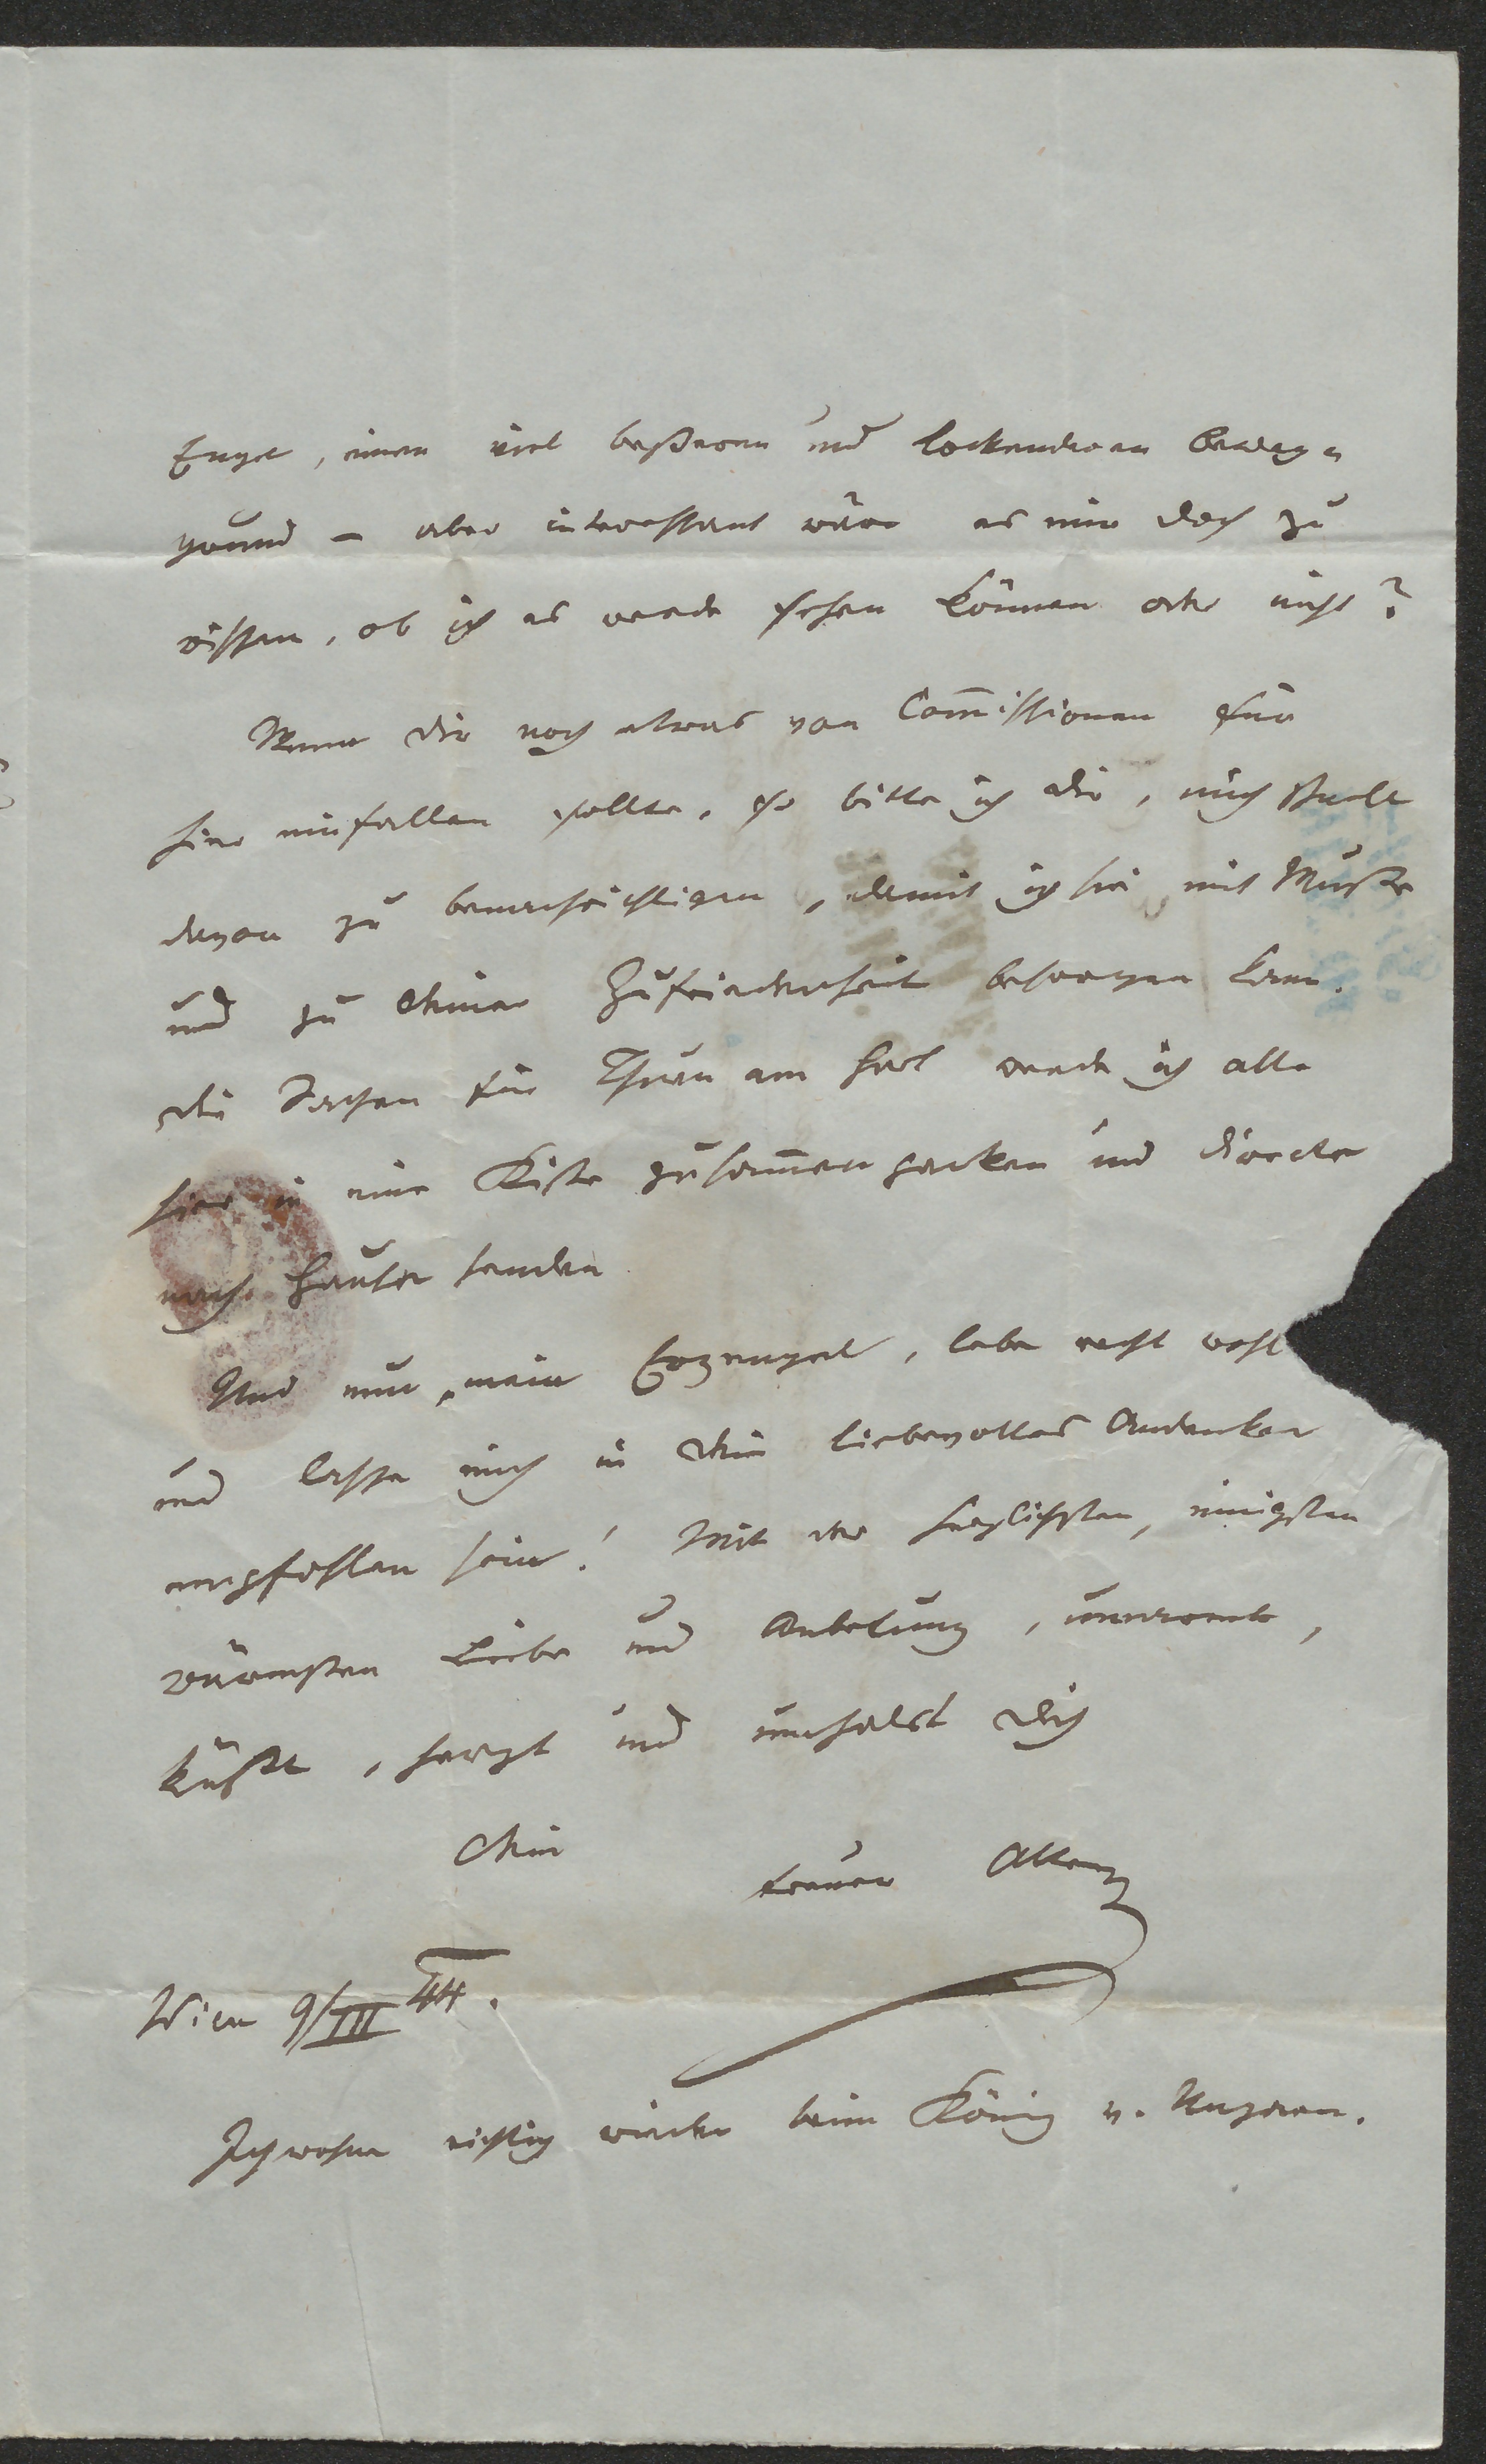 Engel, einen viel beßeren und lockenderen Beweg=
grund – aber interessant wäre es mir doch zu
wissen, ob ich es werde sehen können oder nicht?
Wenn dir noch etwas von Com̄issionen für
hier einfallen sollte, so bitte ich dir, mich
davon zu benachrichtigen, damit ich sie mit Muße
und zu deiner Zufriedenheit besorgen kann.
die Sachen für Thurn am Hart werde ich alle
hier in eine Kiste zusam̄en packen und directe
nach Hause senden
Und nun, mein Erzengel, lebe recht wohl
und lasse mich in dein liebevolles Andenken
empfohlen sein! Mit der herzlichsten, innigsten
wärmsten Liebe und Anbetung, umarmt,
küßt, herzt und umhalst dich
dein
treuer
Wien 9/III 44.
Ich wohne richtig wieder beim König v. Ungarn.